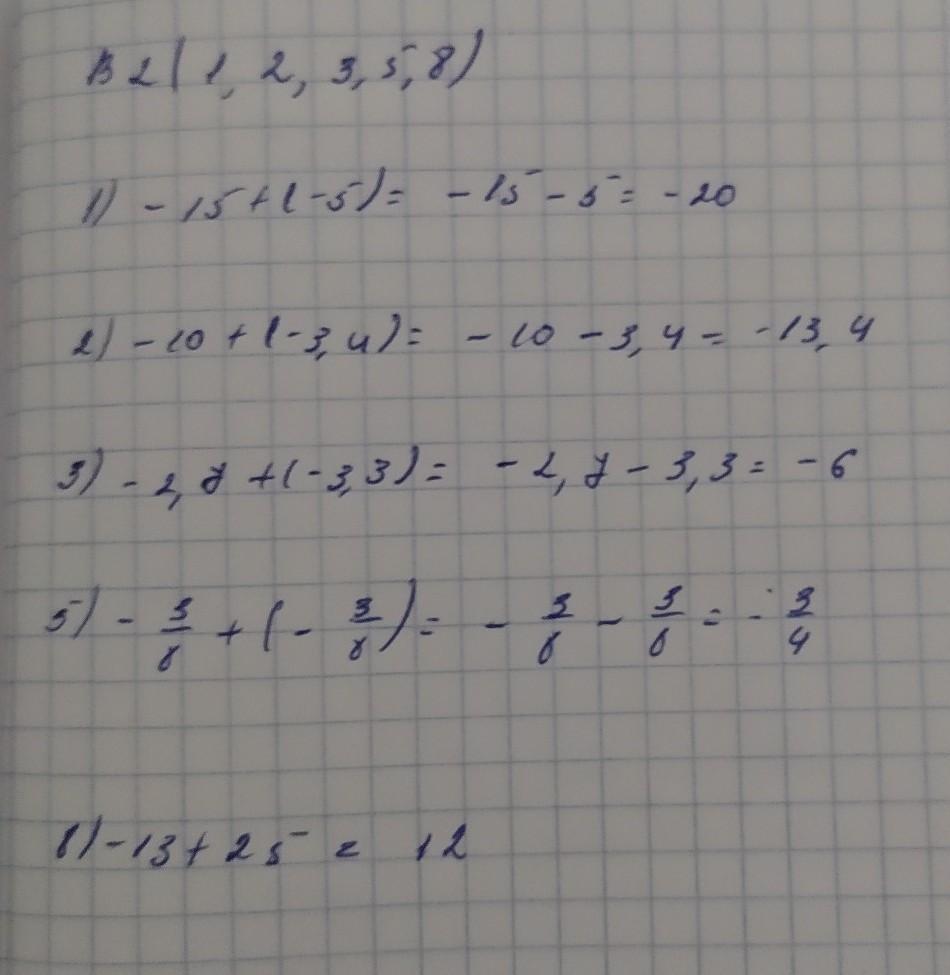 В2(1, 2, 3, 5, 8)
1) -15+(-5)= -15-5= -20
2) -10+(-3,4)= -10-3,4= -13,4
3) -2,7+(-3,3)= -2,7-3,3= -6
5) -3/8+(-3/8)= -3/8-3/8= -3/4
8) -13+25= 12